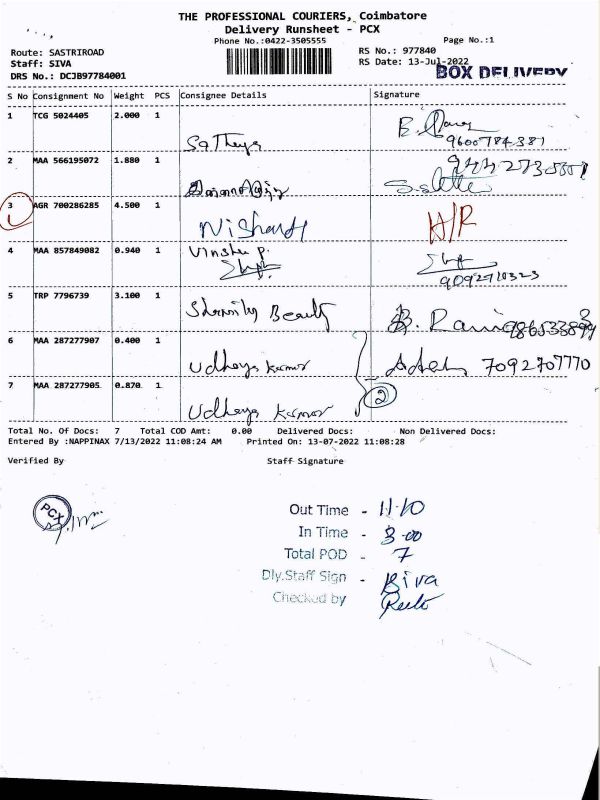 THE PROFESSIONAL COURIERS, Coimbatore
Delivery Runsheet - PCX
Phone No.:0422-3505555 Page No.:1
Route: SASTRIROAD RS No.: 977840
Staff: SIVA RS Date: 13-Jul-2022
DRS No.: DCJB97784001 BOX DELIVERY
S No Consignment No Weight PCS Consignee Details Signature
1 TCG 5024405 2.000 1
9600784381
2 MAA 566195072 1.880 1
3 AGR 700286285 4.500 1
Nishanth
4 MAA 857849082 0.940 1 Vinshu P.
5 TRP 7796739 3.100 1
Beauty B. Rani
6 MAA 287277907 0.400 1
Udhaya Kumar 7092707770
7 MAA 287277905 0.870 1 2
Udhaya Kumar
Total No. Of Docs: 7 Total COD Amt: 0.00 Delivered Docs: Non Delivered Docs:
Entered By :NAPPINAX 7/13/2022 11:08:24 AM Printed On: 13-07-2022 11:08:28
Verified By Staff Signature
PCX
Out Time - 11.10
In Time - 3.00
Total POD - 7
Dly.Staff Sign - Siva
Checked by